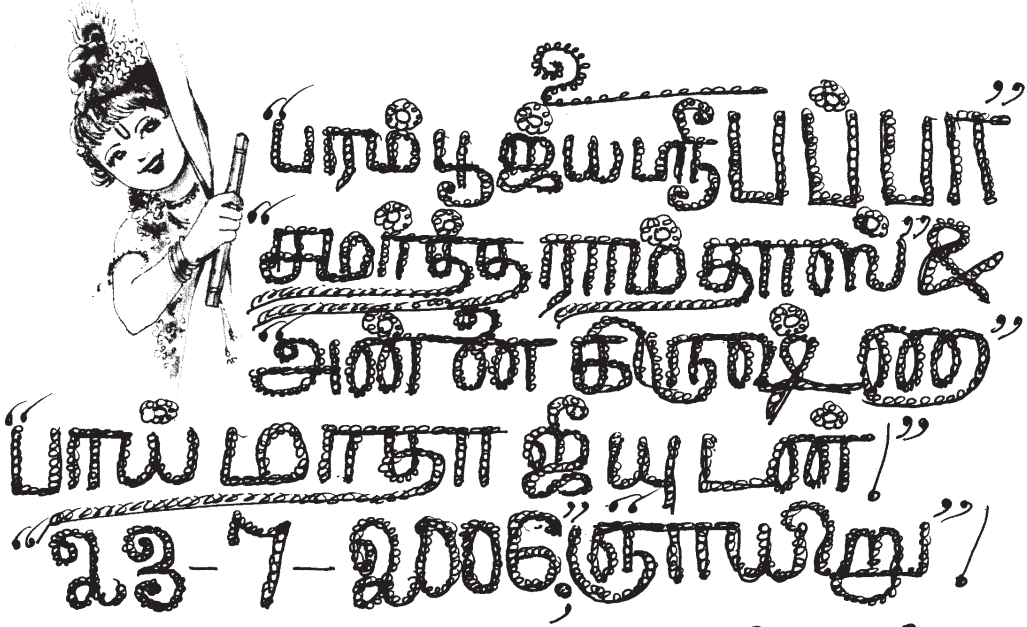 “பரம் பூஜ்ய ஸ்ரீ பப்பா”
“சமர்த்த ராம்தாஸ்” &
“அன்னை கிருஷ்ணா”
“பாய் மாதா ஜீயுடன்!”
“23-7-2006”, “ஞாயிறு”!